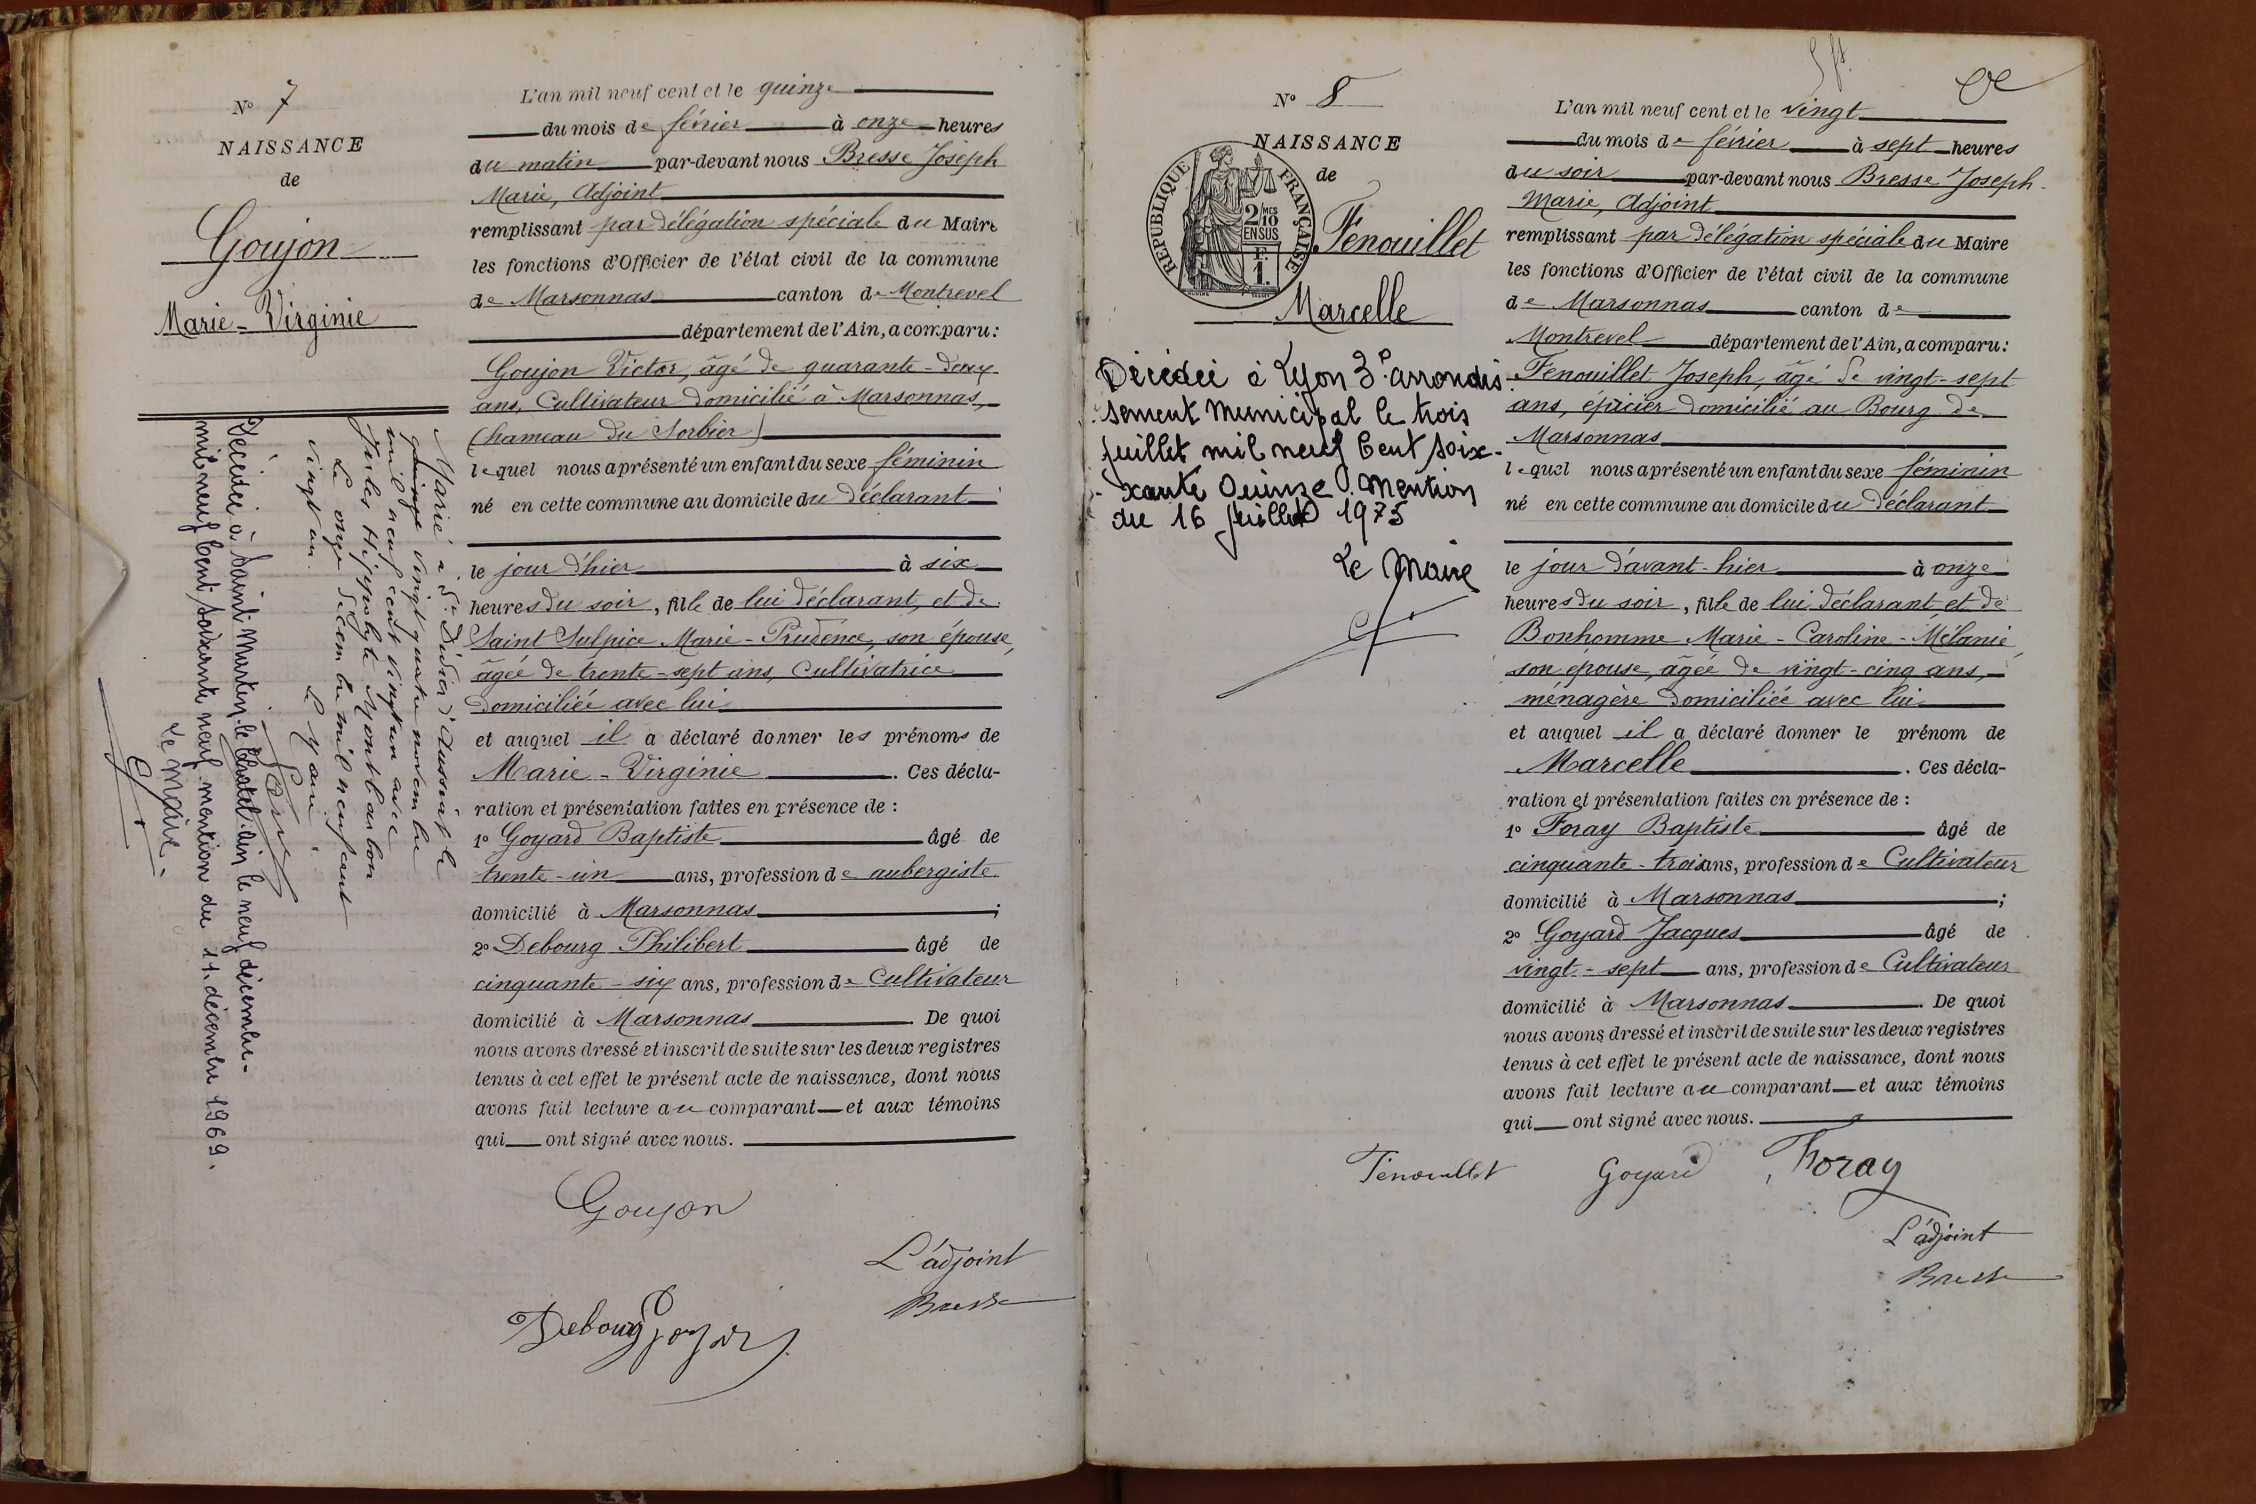 N° 7
NAISSANCE
de
Goujon
Marie-Virginie
Marié à St Didier d'Aussiat le
vingt quatre novembre
mil neuf cent vingt un avec
Jules Hippolyte Montbarbon
Le onze décembre mil neuf cent
vingt un. Le Maire
Décédée à Saint Martin-le Chatel. Ain le neuf décembre-
mil neuf Cent Soixante neuf. mention du 11. décembre 1969.
Le Maire.
L'an mil neuf cent et le quinze
du mois de février à onze heures
du matin par-devant nous Bresse Joseph
Marie, Adjoint
remplissant par délégation spéciale du Maire
les fonctions d'Officier de l'état civil de la commune
de Marsonnas canton de Montrevel
département de l'Ain, a comparu:
Goujon Victor, âgé de quarante-deux
ans, Cultivateur domicilié à Marsonnas,
(hameau du Sorbier)
lequel nous a présenté un enfant du sexe féminin
né en cette commune au domicile du déclarant
le jour d'hier à six
heures du soir, fille de lui déclarant, et de
Saint Sulpice Marie-Prudence, son épouse,
âgée de trente-sept ans, Cultivatrice
domiciliée avec lui
et auquel il a déclaré donner les prénoms de
Marie-Virginie. Ces décla-
ration et présentation faites en présence de :
1° Goyard Baptiste âgé de
trente-un ans, profession de aubergiste
domicilié à Marsonnas ;
2° Debourg Philibert âgé de
cinquante-six ans, profession de Cultivateur
domicilié à Marsonnas. De quoi
nous avons dressé et inscrit de suite sur les deux registres
tenus à cet effet le présent acte de naissance, dont nous
avons fait lecture au comparant et aux témoins
qui ont signé avec nous.
Goujon
L'adjoint
Bresse
Debourg Goyard
N° 8
NAISSANCE
de
REPUBLIQUE FRANÇAISE
2/10 MES
EN SUS
F.
1.
Fenouillet
Marcelle
Décédée à Lyon 3e arrondis-
sement Municipal le trois
juillet mil neuf Cent soix-
xante Quinze. Mention
du 16 juillet 1975
Le Maire
L'an mil neuf cent et le vingt
du mois de février à sept heures
du soir par-devant nous Bresse Joseph
Marie, Adjoint
remplissant par délégation spéciale du Maire
les fonctions d'Officier de l'état civil de la commune
de Marsonnas canton de
Montrevel département de l'Ain, a comparu:
Fenouillet Joseph, âgé de vingt-sept
ans, épicier domicilié au Bourg de
Marsonnas
lequel nous a présenté un enfant du sexe féminin
né en cette commune au domicile du déclarant
le jour d'avant-hier à onze
heures du soir, fille de lui déclarant et de
Bonhomme Marie-Caroline-Mélanie
son épouse, âgée de vingt-cinq ans,
ménagère domiciliée avec lui
et auquel il a déclaré donner le prénom de
Marcelle. Ces décla-
ration et présentation faites en présence de :
1° Foray Baptiste âgé de
cinquante-trois ans, profession de Cultivateur
domicilié à Marsonnas ;
2° Goyard Jacques âgé de
vingt-sept ans, profession de Cultivateur
domicilié à Marsonnas. De quoi
nous avons dressé et inscrit de suite sur les deux registres
tenus à cet effet le présent acte de naissance, dont nous
avons fait lecture au comparant et aux témoins
qui ont signé avec nous.
Fenouillet Goyard Foray
L'adjoint
Bresse